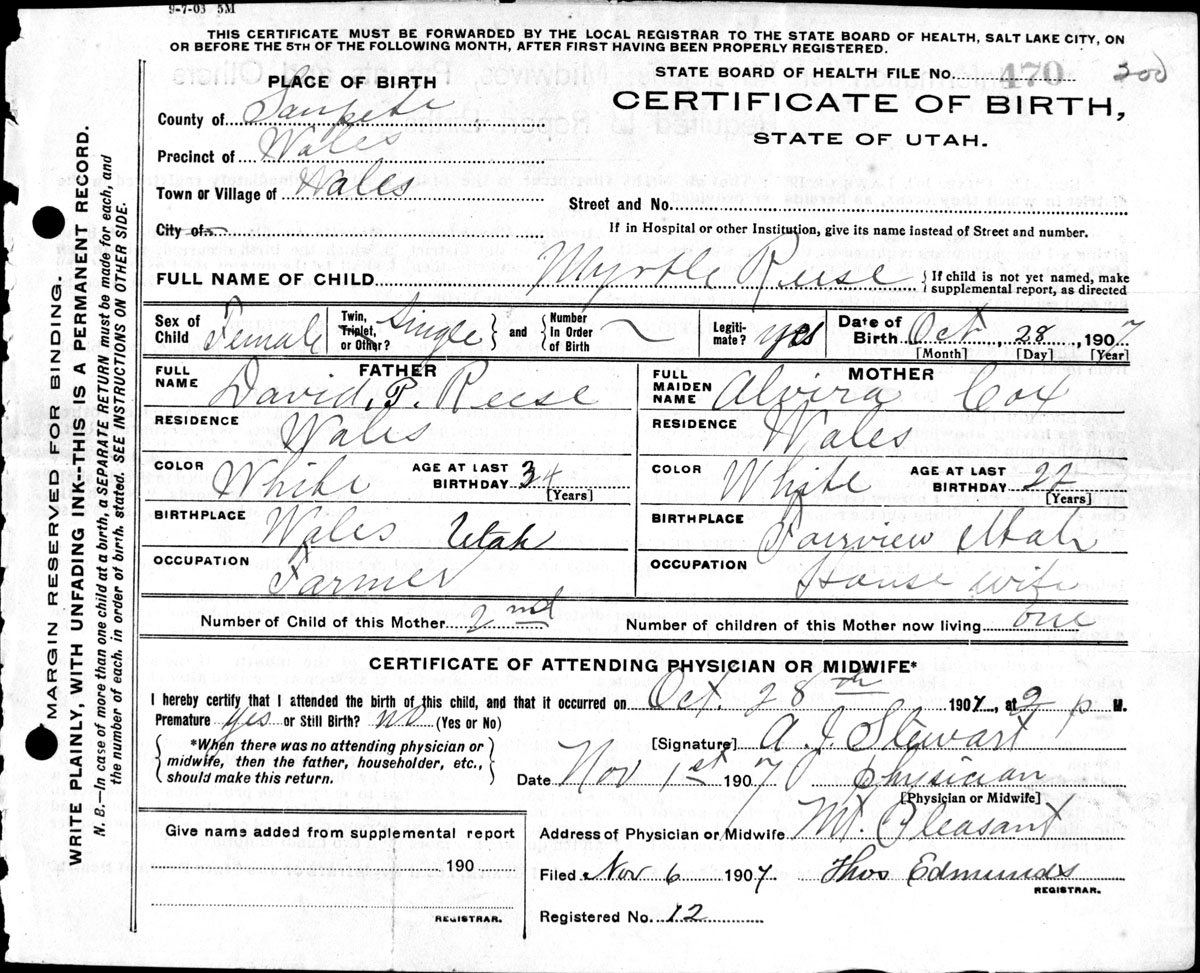 9-7-03 5M
THIS CERTIFICATE MUST BE FORWARDED BY THE LOCAL REGISTRAR TO THE STATE BOARD OF HEALTH, SALT LAKE CITY, ON
OR BEFORE THE 5TH OF THE FOLLOWING MONTH, AFTER FIRST HAVING BEEN PROPERLY REGISTERED.
STATE BOARD OF HEALTH FILE No. 470 300
PLACE OF BIRTH
CERTIFICATE OF BIRTH,
STATE OF UTAH.
County of Sanpete
Precinct of Wales
Town or Village of Wales
Street and No.
City of
If in Hospital or other Institution, give its name instead of Street and number.
FULL NAME OF CHILD Myrtle Reese { If child is not yet named, make
supplemental report, as directed
Sex of Child Female Twin, Triplet, or Other? Single } and { Number In Order of Birth Legiti-mate? yes Date of Birth Oct, 28, 1907
[Month] [Day] [Year]
FATHER MOTHER
FULL NAME David, P. Reese FULL MAIDEN NAME Alvira Cox
RESIDENCE Wales RESIDENCE Wales
COLOR White AGE AT LAST BIRTHDAY 34 [Years] COLOR White AGE AT LAST BIRTHDAY 22 [Years]
BIRTHPLACE Wales Utah BIRTHPLACE Fairview Utah
OCCUPATION Farmer OCCUPATION House wife
Number of Child of this Mother 2nd Number of children of this Mother now living one
CERTIFICATE OF ATTENDING PHYSICIAN OR MIDWIFE*
I hereby certify that I attended the birth of this child, and that it occurred on Oct. 28th 1907, at 2 p M.
Premature Yes or Still Birth? no (Yes or No)
{ *When there was no attending physician or
midwife, then the father, householder, etc.,
should make this return. }
[Signature] A. J. Stewart
Date Nov 1st 1907 physician
[Physician or Midwife]
Address of Physician or Midwife Mt. Pleasant
Give name added from supplemental report
190
REGISTRAR.
Filed Nov 6 1907 Thos Edmunds
REGISTRAR.
Registered No. 12
MARGIN RESERVED FOR BINDING.
WRITE PLAINLY, WITH UNFADING INK--THIS IS A PERMANENT RECORD.
N. B.—In case of more than one child at a birth, a SEPARATE RETURN must be made for each, and
the number of each. in order of birth. stated. SEE INSTRUCTIONS ON OTHER SIDE.